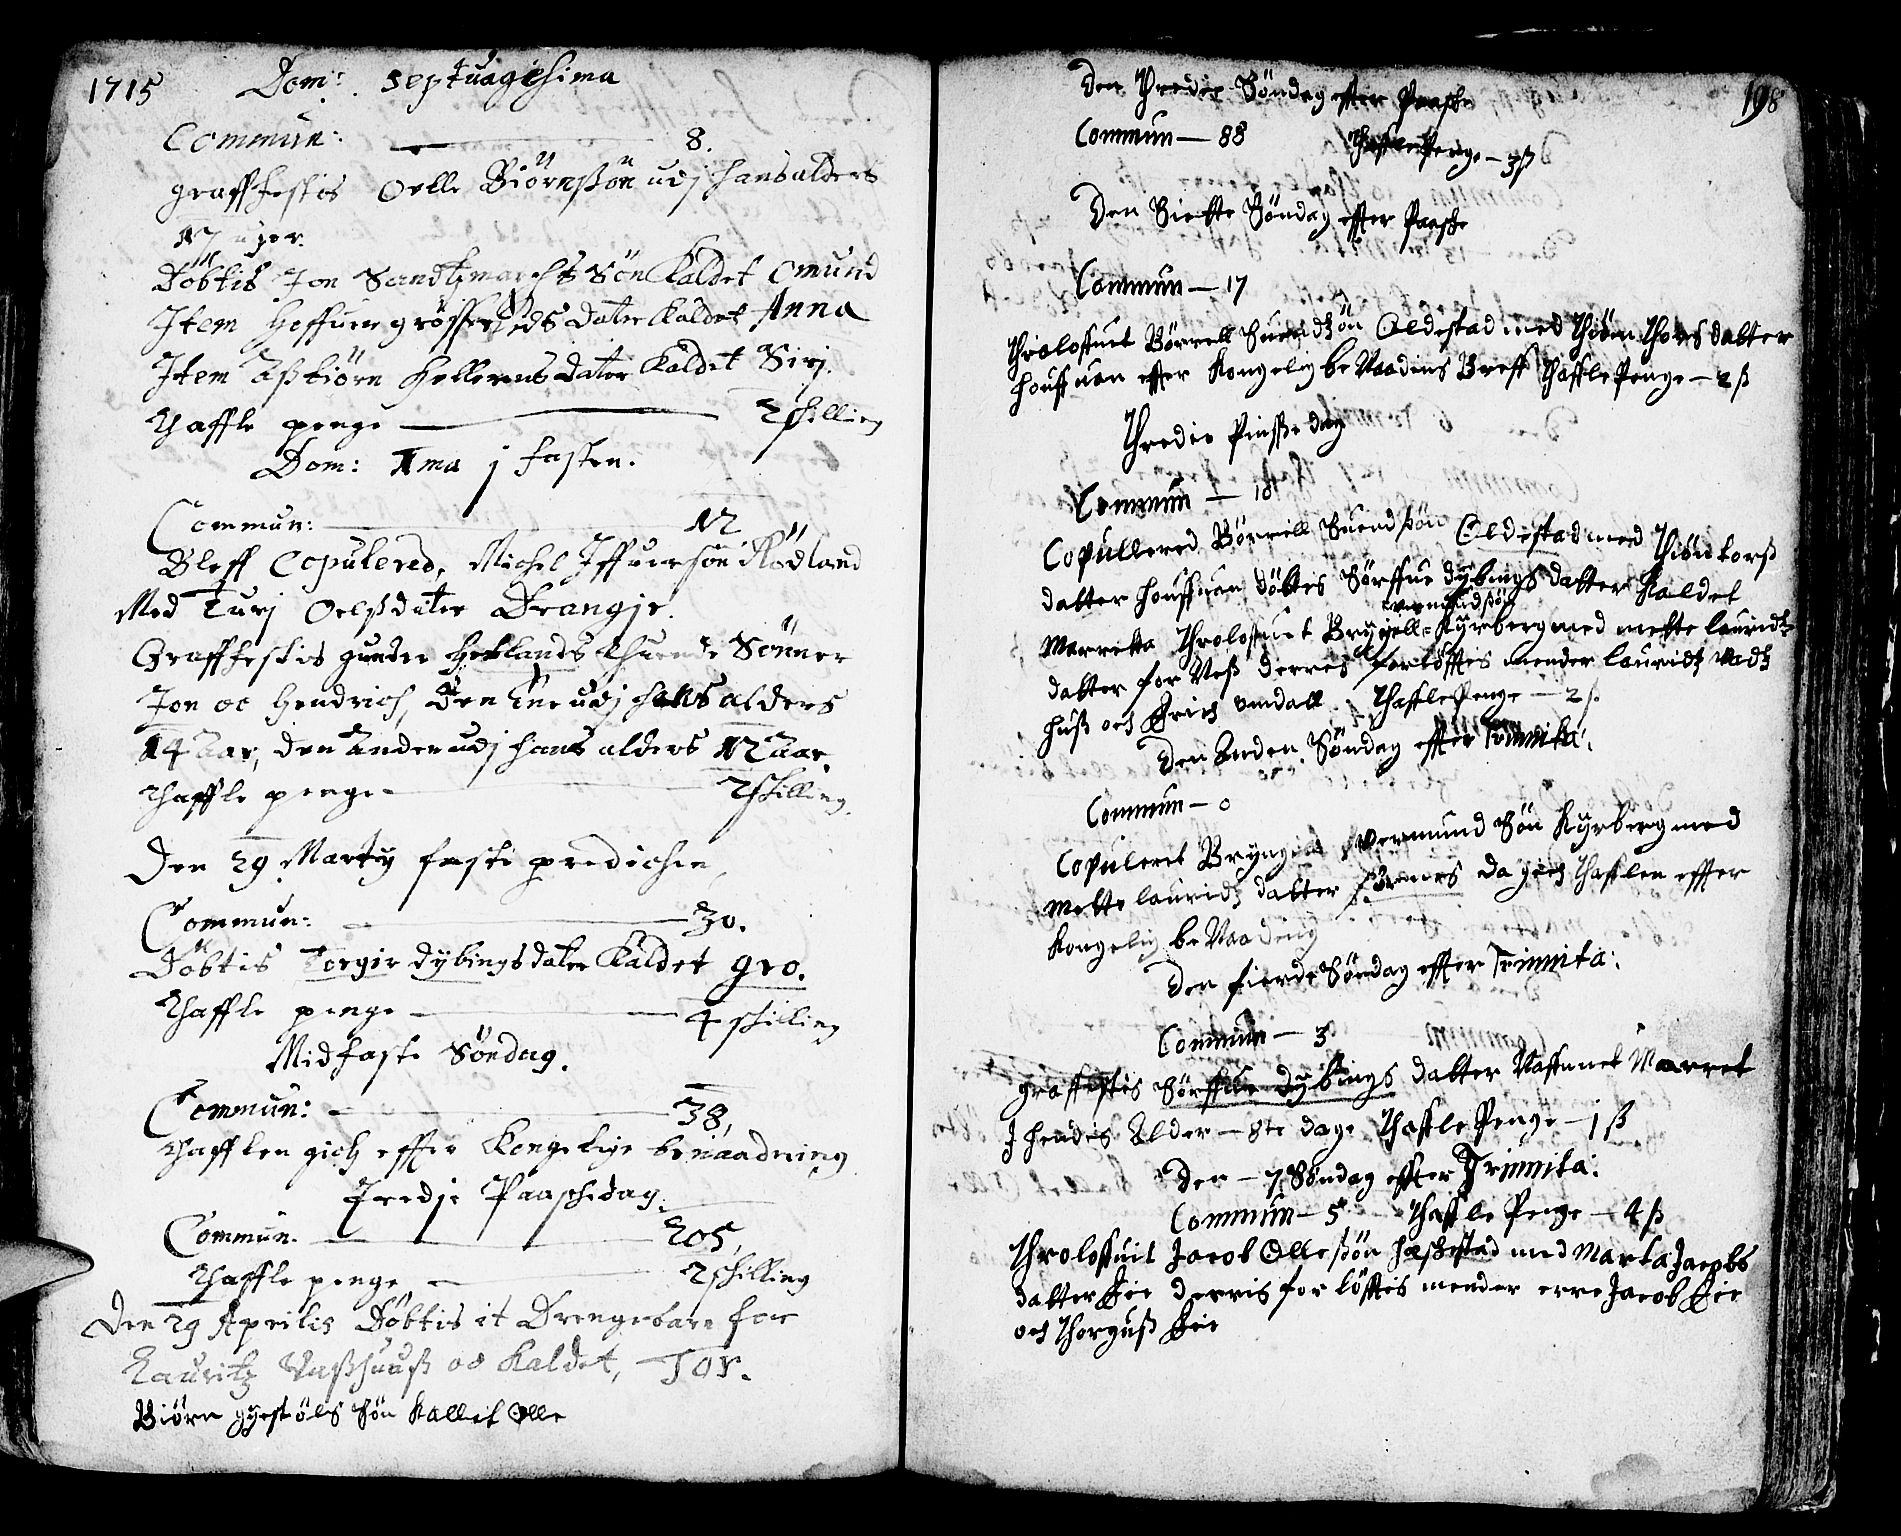 1715 Dom: Septuagesima
Commun: 8.
Graffestis Oelle Biörnsßön udj hans alders
17 uger.
Döbtis Jon Sandtzmarchs Sön Kaldet Omund
Item dater Kaldet Anna
Item Aßbiörn Hellerens dater Kaldet Sirj.
Thaffle penge 2 schilling
Dom: 1ma j fasten.
Commun: 12
Bleff Copulered, Michel Iffuersön Rödland
Med Turj Oelßdater Drangje.
Graffestis gunder Hetlands thuende Sönner
Jon oc Hendrich, den Ene udj hans alders
14 Aar, den Anden udj hans alders 12 Aar.
Thaffle penge 2 schilling.
Den 29 Martij faste predichen,
Commun: 30.
Döbtis Torgir dybings dater Kaldet gro.
Thaffle penge 4 schilling
Midfaste Söndag.
Commun: 38,
Thafflen gich effter Kongelige benaadning
Tredje Paaschedag.
Commun. 205,
Thaffle penge 2 schilling
Den 29 Aprilis Döbtis it Drengebarn for
Lauritz Vaßhuuß oc Kaldet, Tor.
Biörn gyestöls Sön Kallet Olle
198
Den Thredie Söndag effter Paaske
Commun — 88 Thaffle Penge — 3 ß
Den Siette Söndag effter Paaske
Commun — 17
Throloffuet Börrell Suendßön Eldestad med Thiöm Thors datter
Houffuan effter Kongelig be Naadens Breff Thaffle Penge — 2 ß
Thredie Pinße dag
Commun — 18
Copullered Börrell Suendßön Eldestad med Thiön torß
datter Houffuan Döbtes Sörffue dybings datter Kaldet
Marretta Throloffuet Bryngell Wermundßön Kyrberg med Mette lauridtz
datter for Neß derres forlöfftes mender lauridtz Vadtz
huß och Erich omdall. Thaffle Penge — 2 ß
Den Anden Söndag effter Trinnita:
Commun — 0
Copuleret Bryngell Wermund Sön Kyrberg med
Mette lauridtz datter Fornes da gich Thafflen effter
Kongelig be Naading
Den fierde Söndag effter Trinnita:
Commun — 3
graffestis Sörffue Dybings datter Naffnnet Marret
I hendis Alder — 8te dage Thaffle Penge — 1 ß
Den — 7 Söndag effter Trinnita:
Commun — 5 Thaffle Penge — 4 ß
Throloffuit Jacob Olleßön Haskestad med Marta Jacobs
datter Eie derris for löfftes mender erre Jacob Eie
och Thorguß Eie